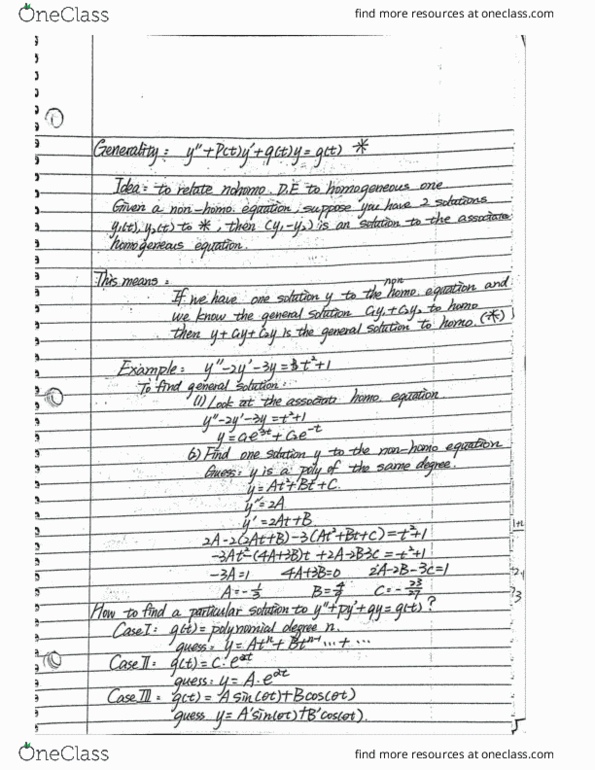 OneClass
find more resources at oneclass.com
Generality: y"+P(t)y'+q(t)y=g(t) *
Idea: to relate nohomo. D.E to homogeneous one
Given a non-homo. equation, suppose you have 2 solutions
y₁(t), y₂(t) to *, then (y₁-y₂) is an solution to the associate
homogeneous equation.
This means:
If we have one solution y to the non homo. equation and
we know the general solution C₁y₁+C₂y₂ to homo
then y+C₁y₁+C₂y is the general solution to homo. (*)
Example: y"-2y'-3y=t²+1
To find general solution:
(1) Look at the associate homo. equation
y"-2y'-3y=t²+1
y=c₁e^3t+C₂e^-t
Find one solution y to the non-homo equation
Guess: y is a poly of the same degree.
y=At²+Bt+C.
y"=2A
y'=2At+B
2A-2(2At+B)-3(At²+Bt+C)=t²+1
-3At²-(4A+3B)t+2A-2B-3C=t²+1
-3A=1 4A+3B=0 2A-2B-3C=1
A=-1/3 B=4/9 C=-23/27
How to find a particular solution to y"+py'+qy=g(t)?
Case I: g(t)=polynomial degree n.
guess: y=At^n+Bt^n-1...+...
Case II: g(t)=C·e^αt
guess: y=A·e^αt
Case III: g(t)=Asin(σt)+Bcos(σt)
guess y=A'sin(σt)+B'cos(σt).
OneClass
find more resources at oneclass.com